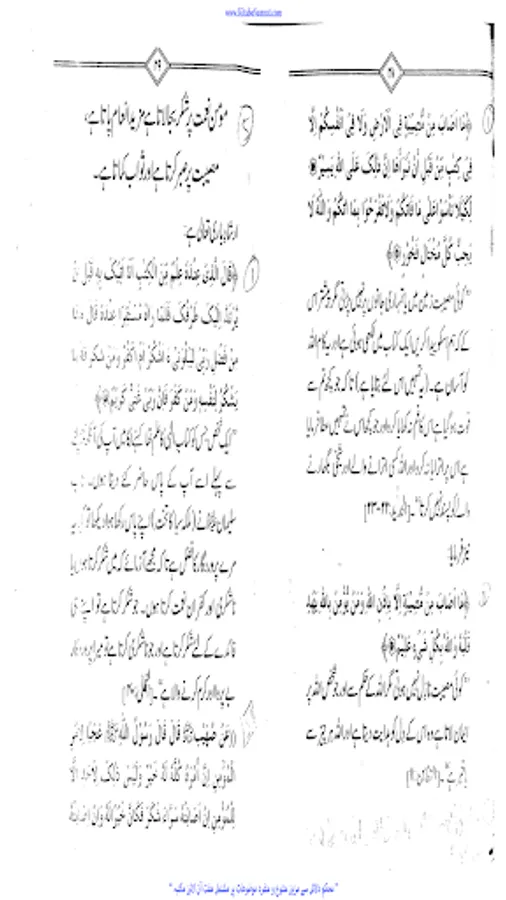 www.KitaboSunnat.com
۲۸
﴿مَا اَصَابَ مِنْ مُّصِيْبَةٍ فِى الْاَرْضِ وَلَا فِى اَنْفُسِكُمْ اِلَّا
فِى كِتٰبٍ مِّنْ قَبْلِ اَنْ نَّبْرَاَهَا اِنَّ ذٰلِكَ عَلَى اللهِ يَسِيْرٌ
لِّكَيْلَا تَاْسَوْا عَلٰى مَا فَاتَكُمْ وَلَا تَفْرَحُوْا بِمَا اٰتٰكُمْ وَاللهُ لَا
يُحِبُّ كُلَّ مُخْتَالٍ فَخُوْرٍ﴾
"کوئی مصیبت زمین میں یا تمہاری جانوں پر نہیں پڑتی مگر پیشتر اس
کے کہ ہم اسکو پیدا کریں ایک کتاب میں لکھی ہوئی ہے اور یہ کام اللہ
کو آسان ہے۔ (یہ تمہیں اس لئے بتایا ہے) تا کہ جو کچھ تم سے
فوت ہو گیا ہے اس کا غم نہ کھایا کرو اور جو کچھ اس نے تمہیں عطا فرمایا
ہے اس پر اترایا نہ کرو اور اللہ کسی اترانے والے اور شیخی بگھارنے
والے کو پسند نہیں کرتا"۔ [الحدید:۲۲-۲۳]
نیز فرمایا:
﴿مَا اَصَابَ مِنْ مُّصِيْبَةٍ اِلَّا بِاِذْنِ اللهِ وَمَنْ يُّؤْمِنْ بِاللهِ يَهْدِ
قَلْبَهٗ وَاللهُ بِكُلِّ شَىْءٍ عَلِيْمٌ﴾
"کوئی مصیبت نازل نہیں ہوتی مگر اللہ کے حکم سے اور جو شخص اللہ پر
ایمان لاتا ہے وہ اس کے دل کو ہدایت دیتا ہے اور اللہ ہر چیز سے
باخبر ہے"۔ [التغابن:۱۱]
۲۹
مؤمن نعمت پر شکر بجا لاتا ہے مزید انعام پاتا ہے،
مصیبت پر صبر کرتا ہے اور ثواب کماتا ہے۔
ارشاد باری تعالیٰ ہے:
﴿قَالَ الَّذِىْ عِنْدَهٗ عِلْمٌ مِّنَ الْكِتٰبِ اَنَا اٰتِيْكَ بِهٖ قَبْلَ اَنْ
يَّرْتَدَّ اِلَيْكَ طَرْفُكَ فَلَمَّا رَاٰهُ مُسْتَقِرًّا عِنْدَهٗ قَالَ هٰذَا
مِنْ فَضْلِ رَبِّىْ لِيَبْلُوَنِىْ ءَاَشْكُرُ اَمْ اَكْفُرُ وَمَنْ شَكَرَ فَاِنَّمَا
يَشْكُرُ لِنَفْسِهٖ وَمَنْ كَفَرَ فَاِنَّ رَبِّىْ غَنِىٌّ كَرِيْمٌ﴾
"ایک شخص جس کو کتاب الٰہی کا علم تھا کہنے لگا میں آپ کی آنکھ جھپکنے
سے پہلے اسے آپ کے پاس حاضر کئے دیتا ہوں۔ جب
سلیمان نے (ملکہ سبا کا تخت) اپنے پاس رکھا ہوا دیکھا تو کہا یہ
میرے پروردگار کا فضل ہے تا کہ مجھے آزمائے کہ میں شکر کرتا ہوں یا
ناشکری اور کفران نعمت کرتا ہوں۔ جو شکر کرتا ہے تو اپنے ہی
فائدے کے لئے شکر کرتا ہے اور جو ناشکری کرتا ہے تو میرا پروردگار
بے پروا اور کرم کرنے والا ہے"۔ [النمل:۴۰]
((عَنْ صُهَيْبٍ قَالَ قَالَ رَسُوْلُ اللهِ ﷺ: عَجَبًا لِاَمْرِ
الْمُؤْمِنِ اِنَّ اَمْرَهٗ كُلَّهٗ لَهٗ خَيْرٌ وَلَيْسَ ذٰلِكَ لِاَحَدٍ اِلَّا
لِلْمُؤْمِنِ اِنْ اَصَابَتْهُ سَرَّاءُ شَكَرَ فَكَانَ خَيْرًا لَهٗ وَاِنْ اَصَابَتْهُ
" محکم دلائل سے مزین متنوع و منفرد موضوعات پر مشتمل مفت آن لائن مکتبہ "